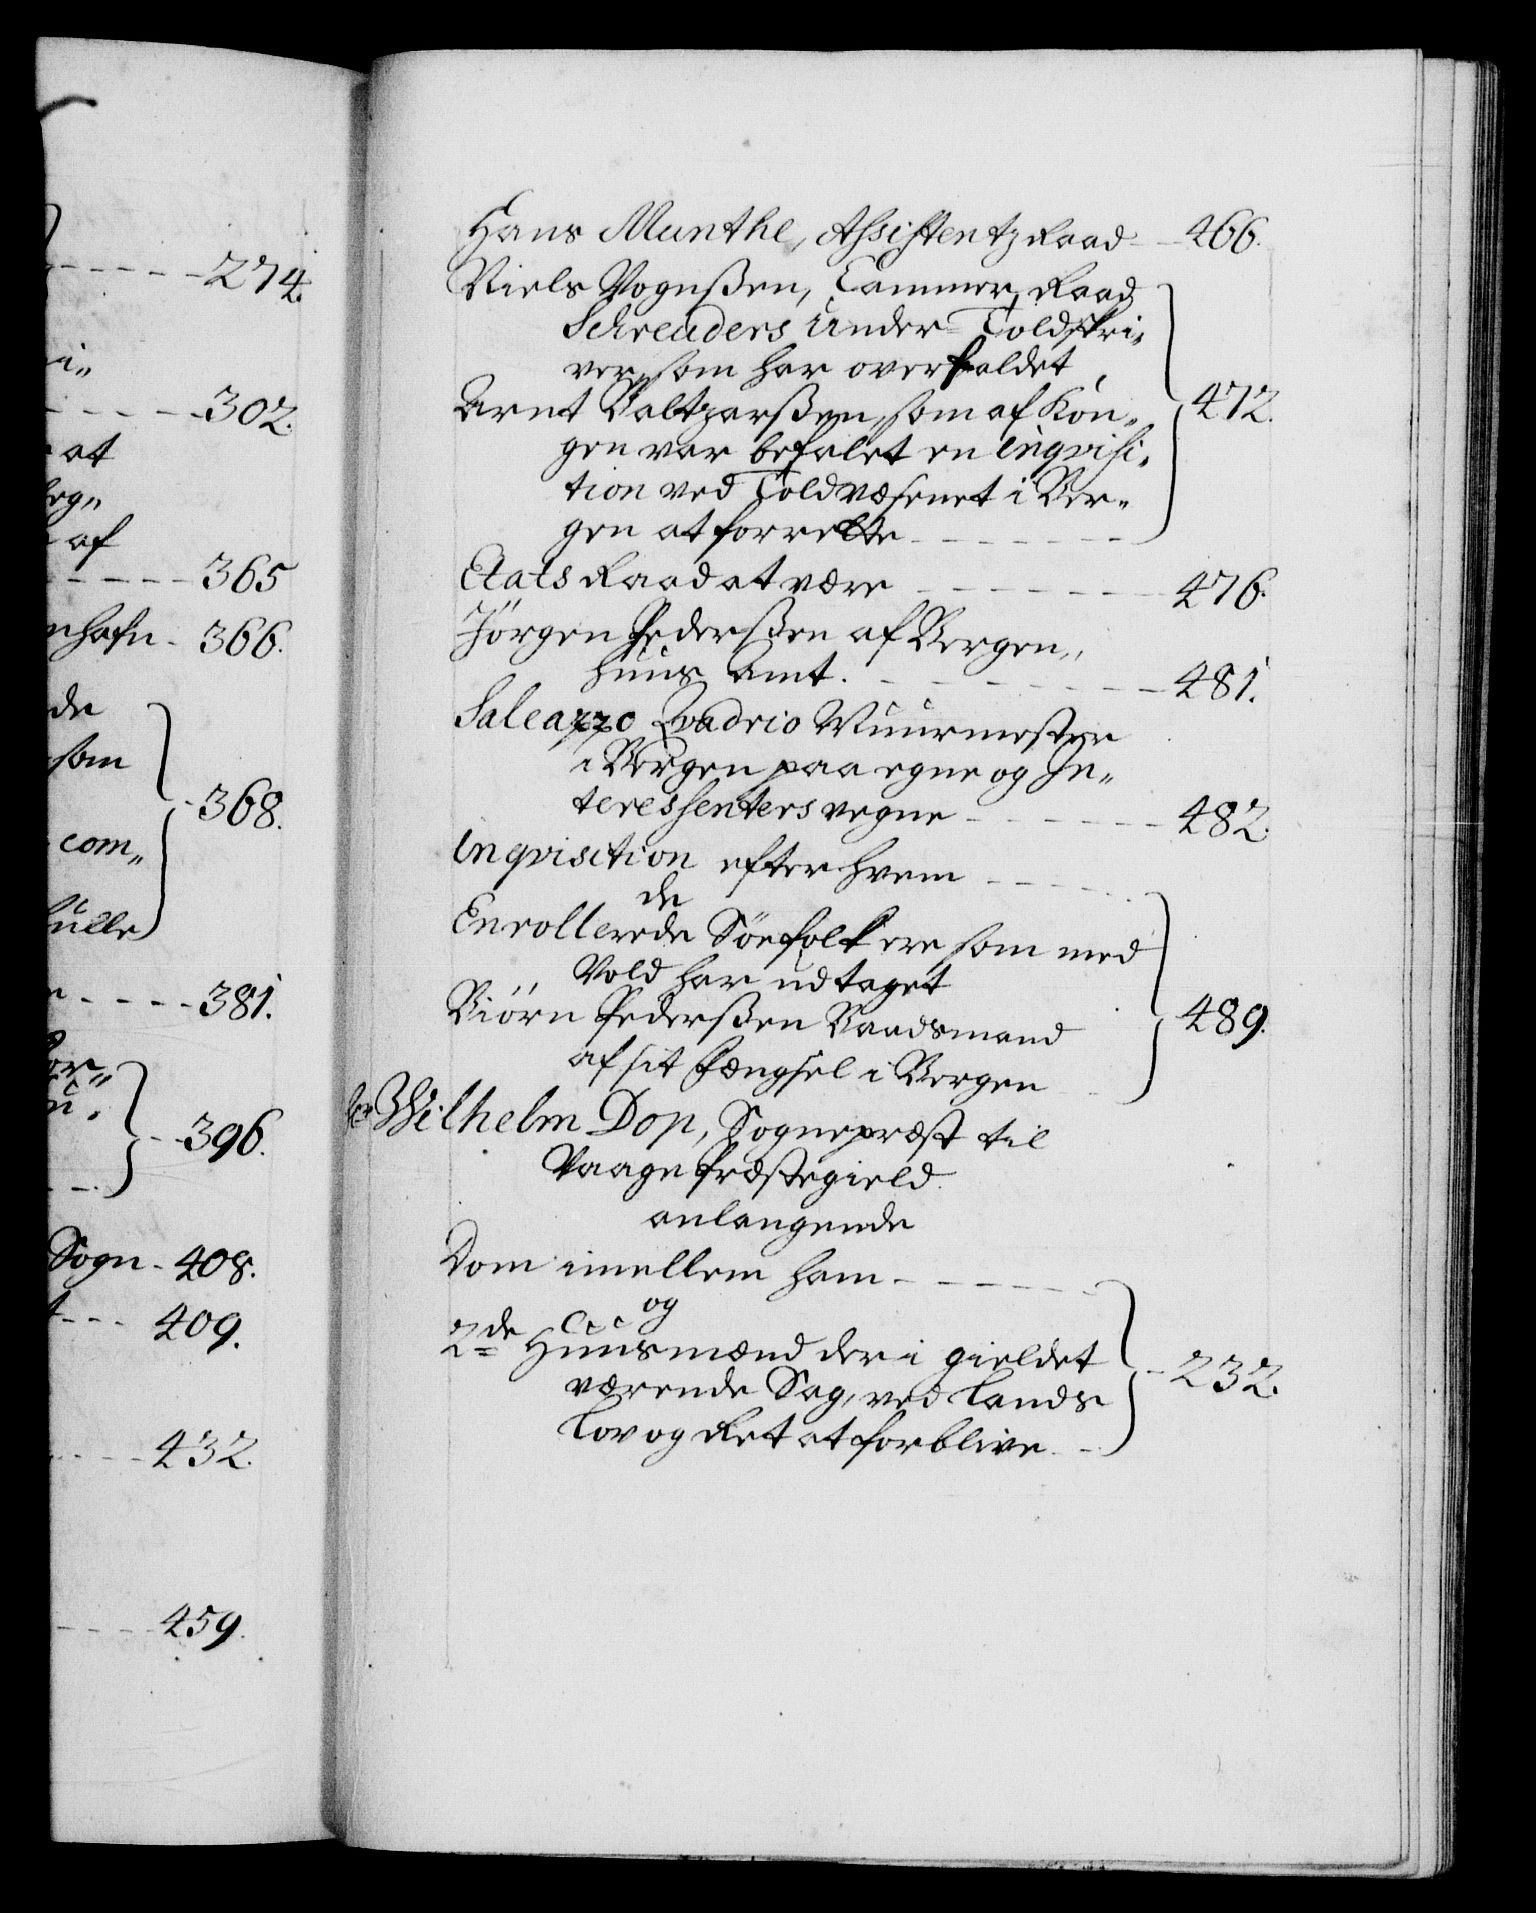 274.
i„
302.
at
af
365
nhafn - 366.
de
som
368.
com„
381.
396.
Sogn - 408.
409.
432.
459.
Hans Munthe, Assistentz Raad - 466.
Niels Vognßen, Cammer Raad
Schreuders Under Toldskri„
ver, som har overfaldet
Arnt Baltzarßen, som af Kon„
gen var befalet en inqvisi„
tion ved Toldvæsenet i Ber„
gen at forrette - 472.
Etats Raad at være - 476.
Jörgen Pederßen af Bergen„
huus Amt. - 481.
Saleazzo Qvadrio Muurmester
i Bergen paa egne og In„
teressenters vegne - 482.
Inqvisition efter hvem
de
Enrollerede Söefolk ere som med
Vold har udtaget
Biörn Pederßen Baadsmand
af sit Fængsel i Bergen - 489.
Wilhelm Dop, Sognepræst til
Vaage Præstegield
anlangende
Dom imellem ham
og
2de Huusmænd der i gieldet
værende Sag, ved Lands
Lov og Ret at forblive - 232.